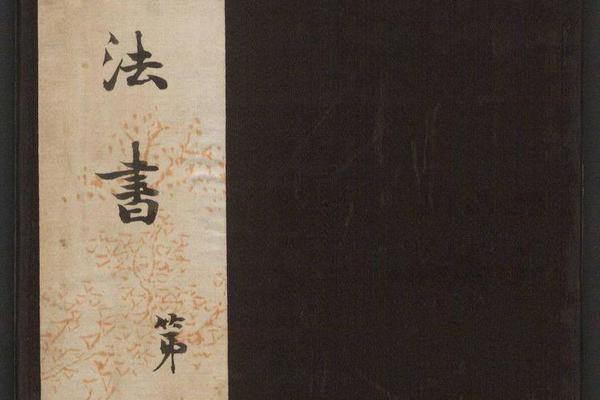 法書
第